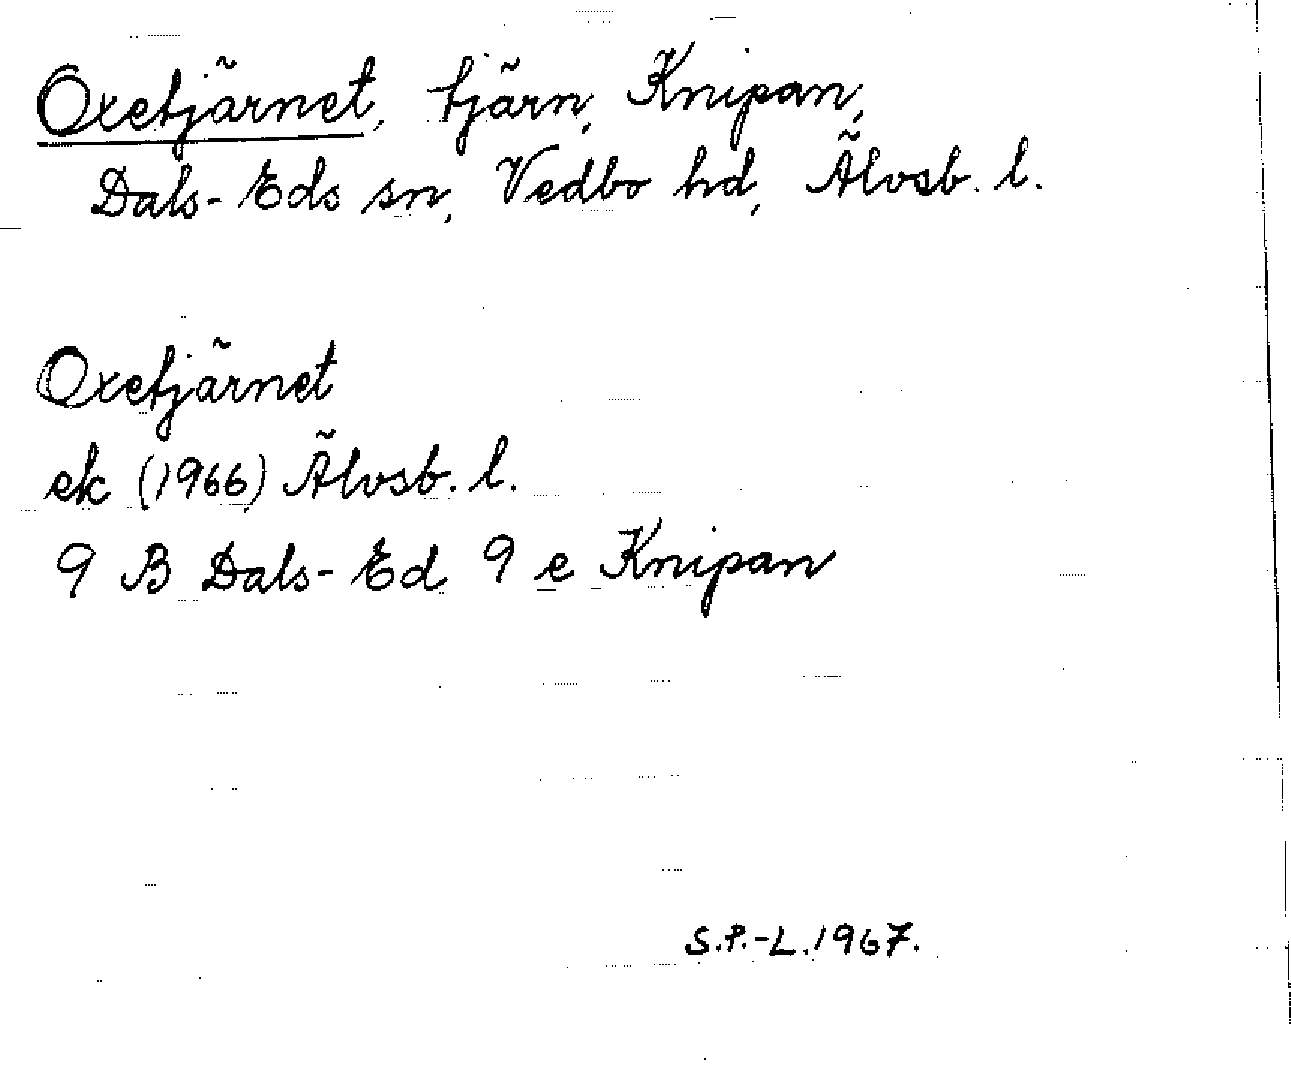 Oxetjärnet, tjärn, Knipan,
Dals-Eds sn, Vedbo hd, Älvsb. l.
Oxetjärnet
ek (1966) Älvsb. l.
9 B Dals-Ed 9 e Knipan
S.P.-L. 1967.